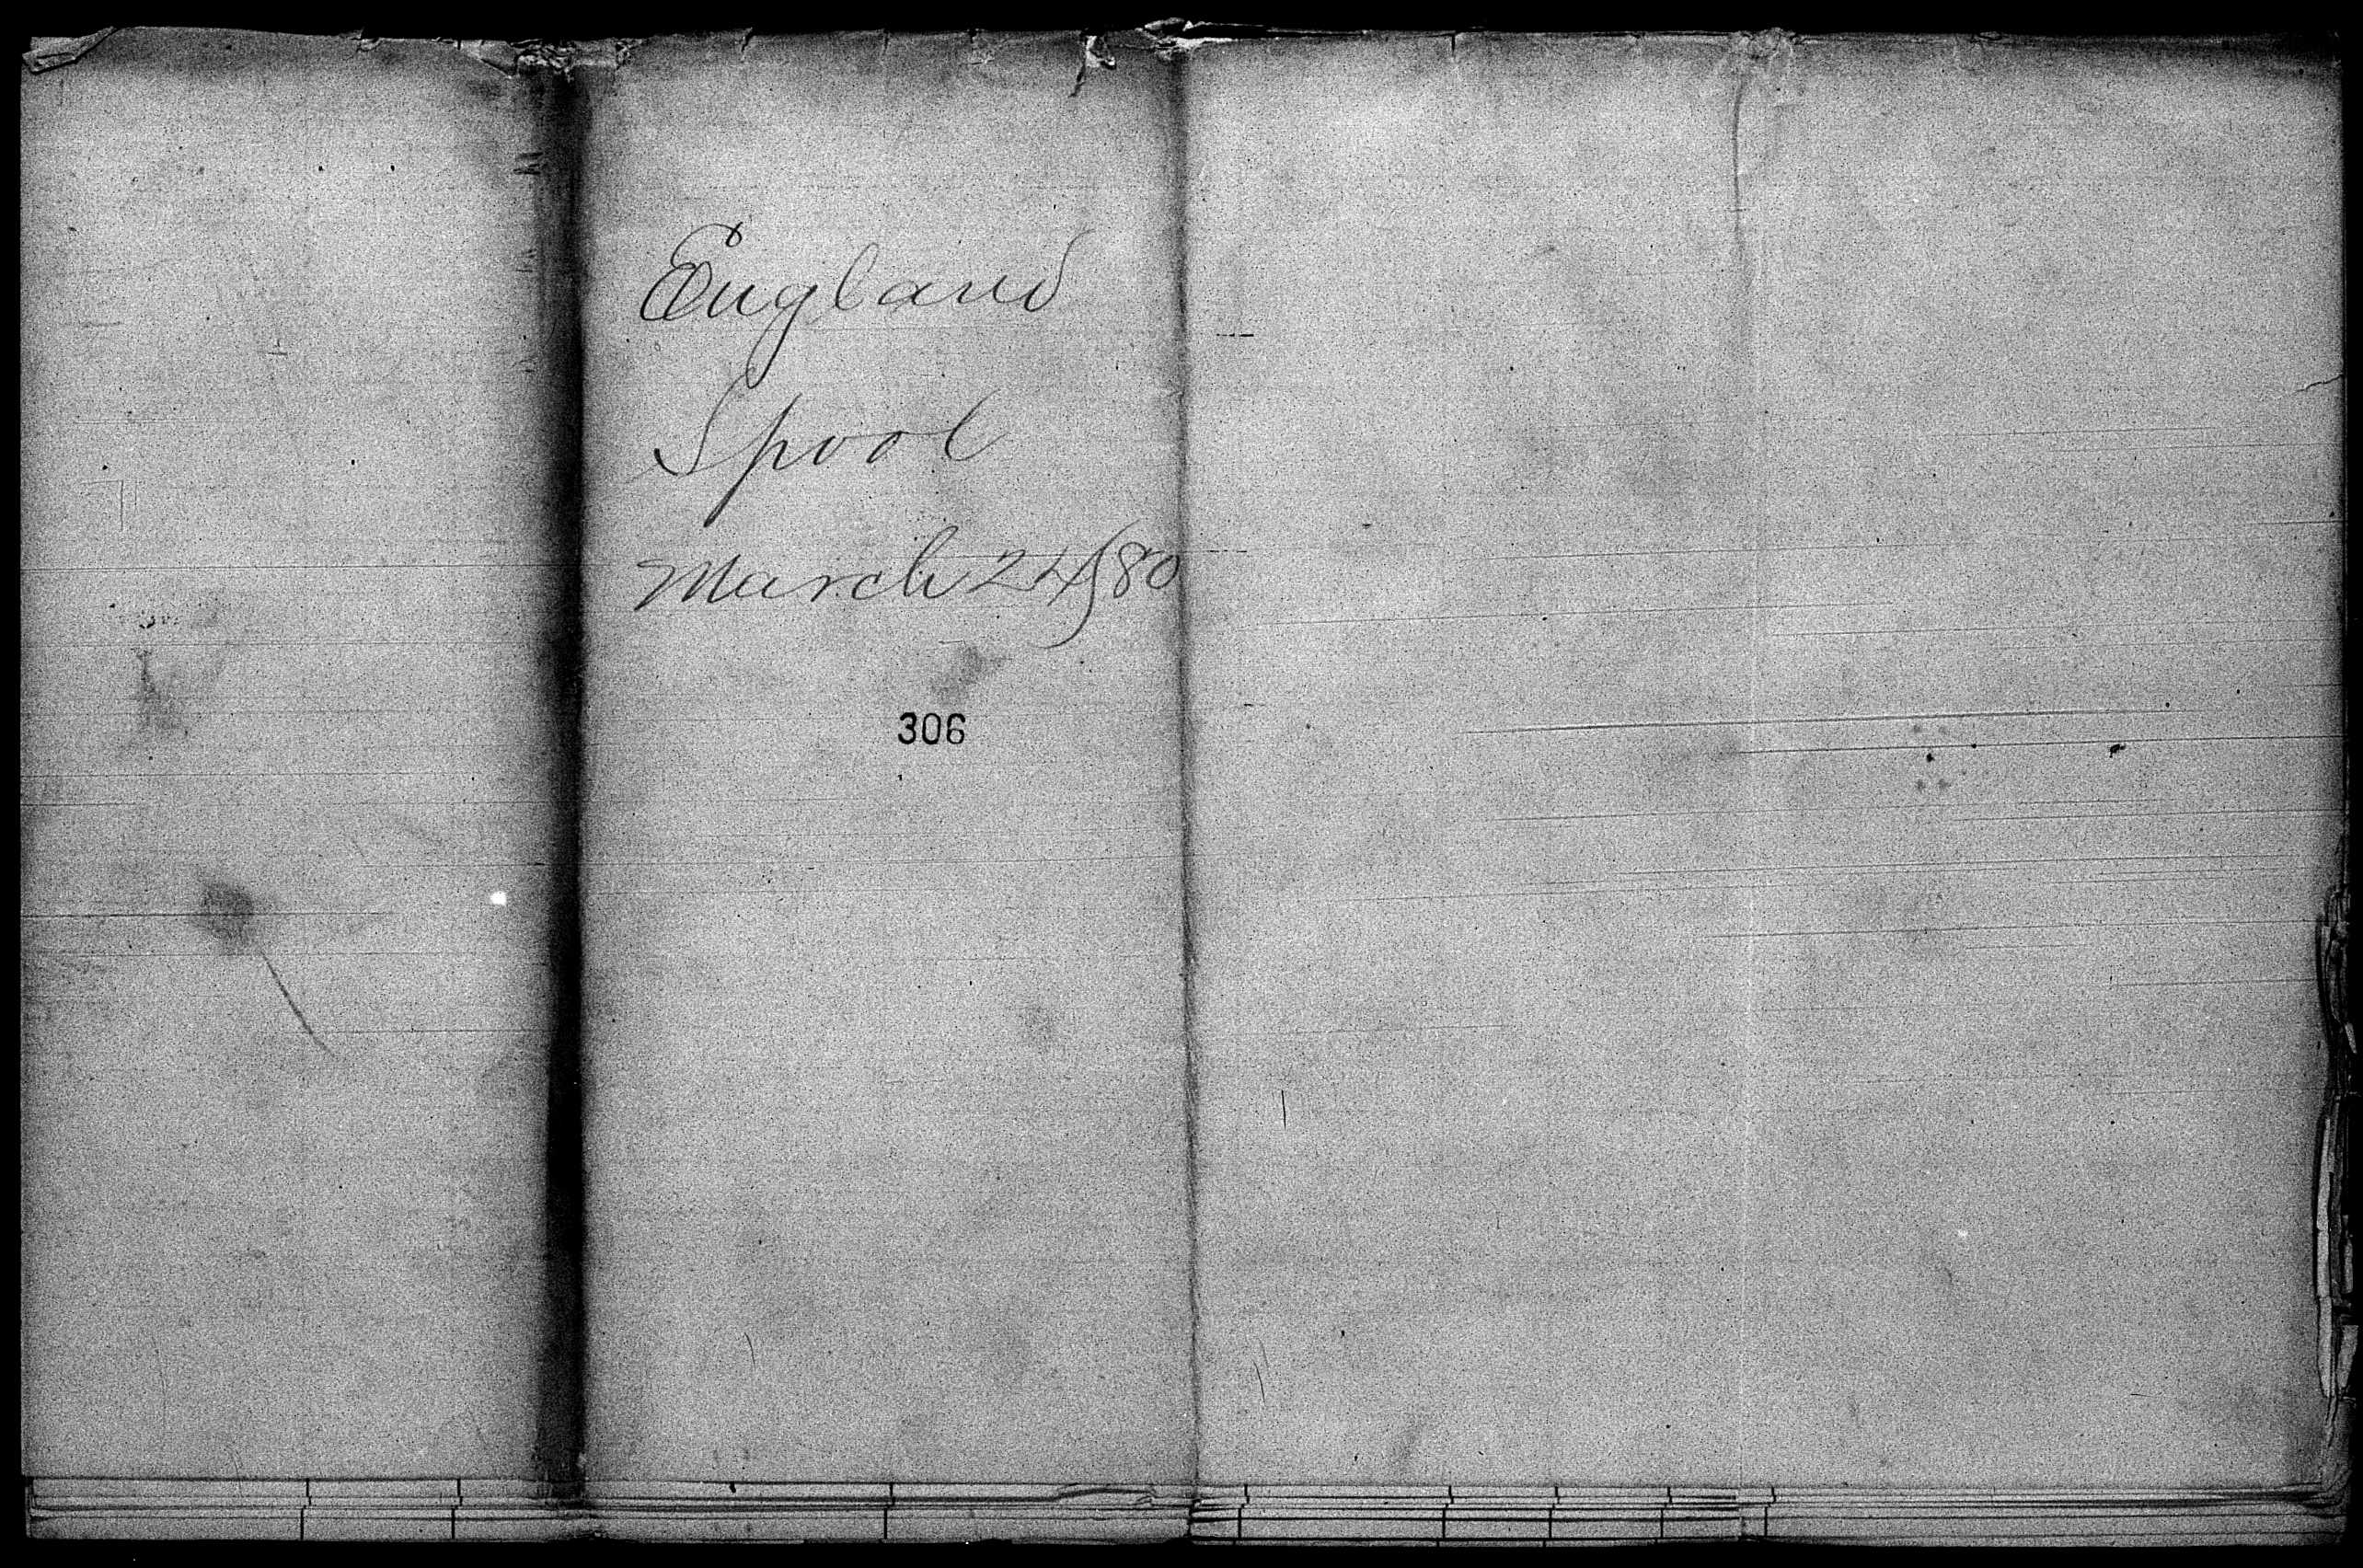 England
Spool
March 24/80
306